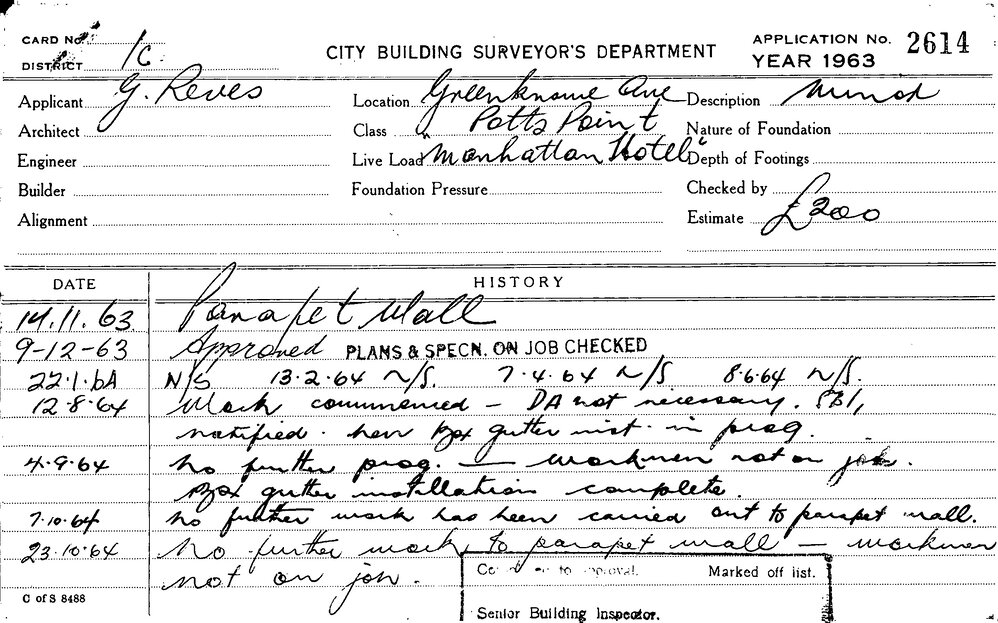 CARD No.
DISTRICT 1C
CITY BUILDING SURVEYOR'S DEPARTMENT
APPLICATION No. 2614
YEAR 1963
Applicant G. Reves
Location Greenknowe Ave
Description Minor
Architect
Class Potts Point
Nature of Foundation
Engineer
Live Load "Manhattan Hotel"
Depth of Footings
Builder
Foundation Pressure
Checked by
Alignment
Estimate £200
DATE HISTORY
14.11.63 Parapet Wall
9-12-63 Approved PLANS & SPECN. ON JOB CHECKED
22.1.64 N/S 13.2.64 N/S. 7.4.64 N/S 8.6.64 N/S.
12.8.64 Work commenced - DA not necessary.
notified. new box gutter inst. in prog.
4.9.64 No further prog. — workmen not on job.
Box gutter installation complete.
7.10.64 No further work has been carried out to parapet wall.
23.10.64 No further work to parapet wall — workmen
not on job.
to approval. Marked off list.
C of S 8488
Senior Building Inspector.